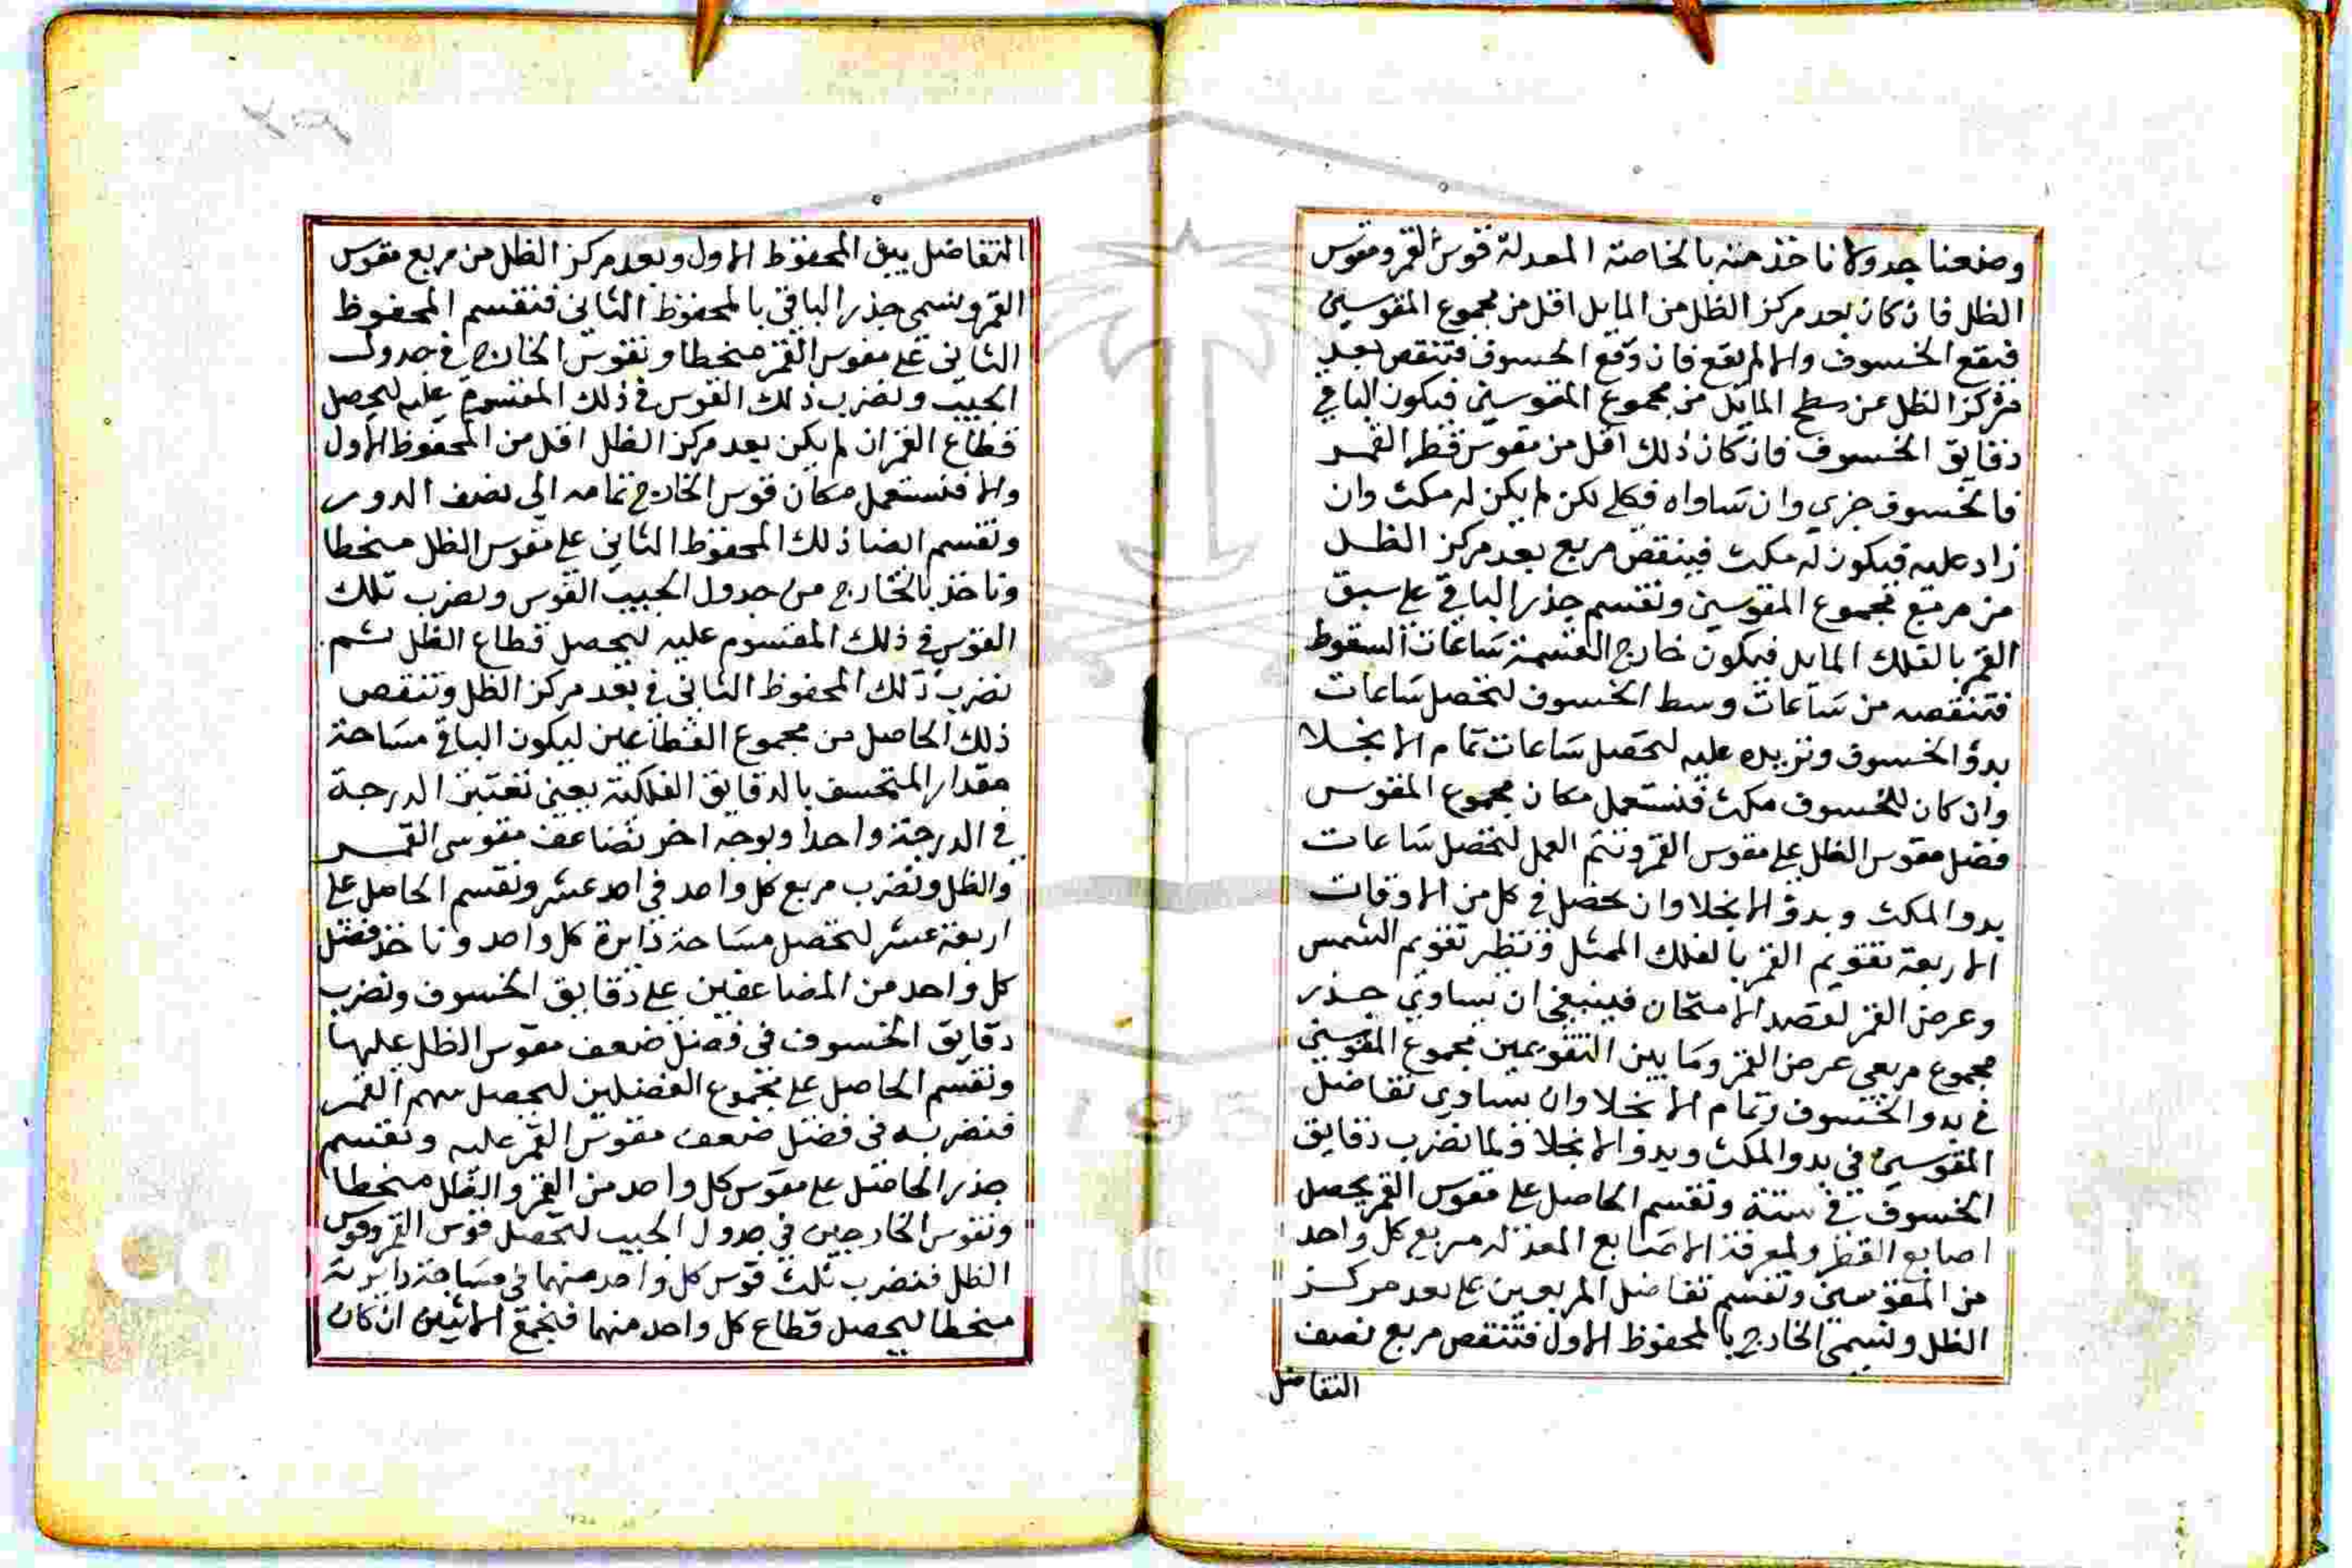 وضعنا جدولا ناخذ منه بالخاصة المعدلة قوس القمر ومقوس
الظل فان كان بعد مركز الظل من المايل اقل من مجموع المقوسين
فيقع الخسوف والا لم يقع فان وقع الخسوف فتنقص بعد
مركز الظل عن سطح المايل من مجموع المقوسين فيكون الباقي
دقايق الخسوف فان كان ذلك اقل من مقوس قطر القمر
فالخسوف جزي وان ساواه فكلي لكن لم يكن له مكث وان
زاد عليه فيكون له مكث فينقص مربع بعد مركز الظل
من مربع مجموع المقوسين ونقسم جذر الباقي علي سبق
القمر بالفلك المايل فيكون خارج القسمة ساعات السقوط
فتنقصه من ساعات وسط الخسوف لتحصل ساعات
بدؤ الخسوف ونزيده عليه لتحصل ساعات تمام الانجلا
وان كان للخسوف مكث فنستعمل مكان مجموع المقوس
فضل مقوس الظل علي مقوس القمر ونتم العمل لتحصل ساعات
بدو المكث وبدؤ الانجلا وان نحصل في كل من الاوقات
الاربعة تقويم القمر بالفلك الممثل ونظر تقويم الشمس
وعرض القمر لقصد الامتحان فينبغي ان يساوي جذر
مجموع مربعي عرض القمر وما بين التقويمين مجموع المقوسين
في بدو الخسوف وتمام الانجلا وان يساوي تفاضل
المقوسين في بدو المكث وبدؤ الانجلا ولما نضرب دقايق
الخسوف في ستة ونقسم الحاصل علي مقوس القمر يحصل
اصابع القطر ولمعرفة الاصابع المعدله مربع كل واحد
من المقوسين ونقسم تفاضل المربعين علي بعد مركز
الظل ونسمي الخارج بالمحفوظ الاول فتنقص مربع نصف
التفاضل
التفاضل بين المحفوظ الاول وبعد مركز الظل من مربع مقوس
القمر ونسمي جذر الباقي بالمحفوظ الثاني فنقسم المحفوظ
الثاني علي مقوس القمر منحطا ونقوس الخارج في جدول
الجيب ونضرب ذلك القوس في ذلك المقسوم عليه ليحصل
قطاع القمر ان لم يكن بعد مركز الظل اقل من المحفوظ الاول
والا فنستعمل مكان قوس الخارج تمامه الي نصف الدور
ونقسم ايضا ذلك المحفوظ الثاني علي مقوس الظل منحطا
وناخذ بالخارج من جدول الجيب القوس ونضرب تلك
القوس في ذلك المقسوم عليه ليحصل قطاع الظل ثم
نضرب ذلك المحفوظ الثاني في بعد مركز الظل وتنقص
ذلك الحاصل من مجموع القطاعين ليكون الباقي مساحة
مقدار المنخسف بالدقايق الفلكية يعني نعتبر الدرجة
في الدرجة واحدا وبوجه اخر نضاعف مقوسي القمر
والظل ونضرب مربع كل واحد في احد عشر ونقسم الحاصل علي
اربعة عشر لتحصل مساحة دايرة كل واحد وناخذ فضل
كل واحد من المضاعفين علي دقايق الخسوف ونضرب
دقايق الخسوف في فضل ضعف مقوس الظل عليها
ونقسم الحاصل علي مجموع الفضلين ليحصل سهم القمر
فنضربه في فضل ضعف مقوس القمر عليه ونقسم
جذر الحاصل علي مقوس كل واحد من القمر والظل منحطا
ونقوس الخارجين في جدول الجيب لتحصل قوس القمر وقوس
الظل فنضرب ثلث قوس كل واحد منهما في مساحة دايرته
منحطا ليحصل قطاع كل واحد منهما فنجمع الاثنين ان كان